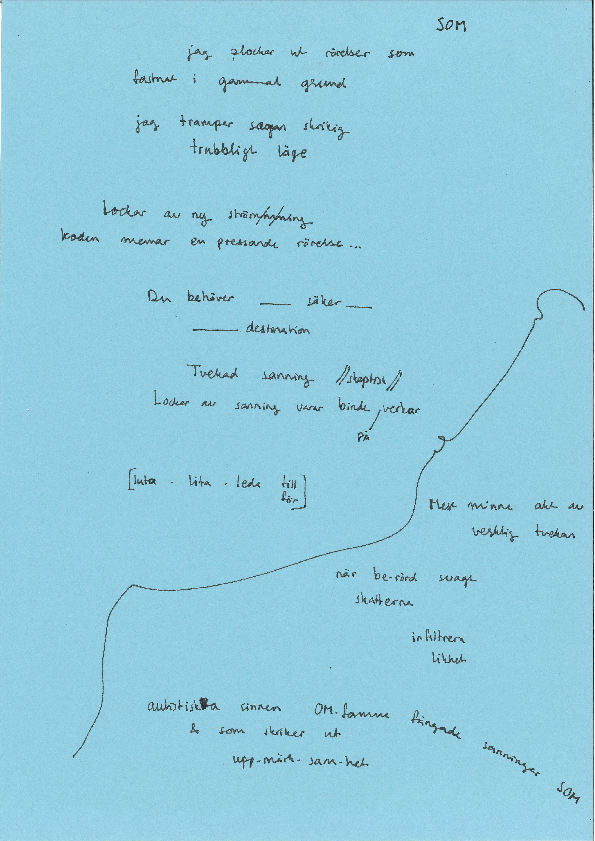 SOM
jag plockar ut rörelser som
fastnat i gammal grund
jag trampar sagan skrikig
trubbligt läge
Lockar av ny ström/n/ning
koden memar en pressande rörelse...
Du behöver ___ säker ___
___ destination
Tvekad sanning //skeptisk//
Lockar av sanning varar binde verkar
PÅ
[luta · lita · leda till
för]
Mest minne akt av
verklig tvekan
när be-rörd svagt
skatterna
infiltrera
likhet
autistiska sinnen OM-famna fångade sanningar SOM
& som skriker ut
upp-märk-sam-het